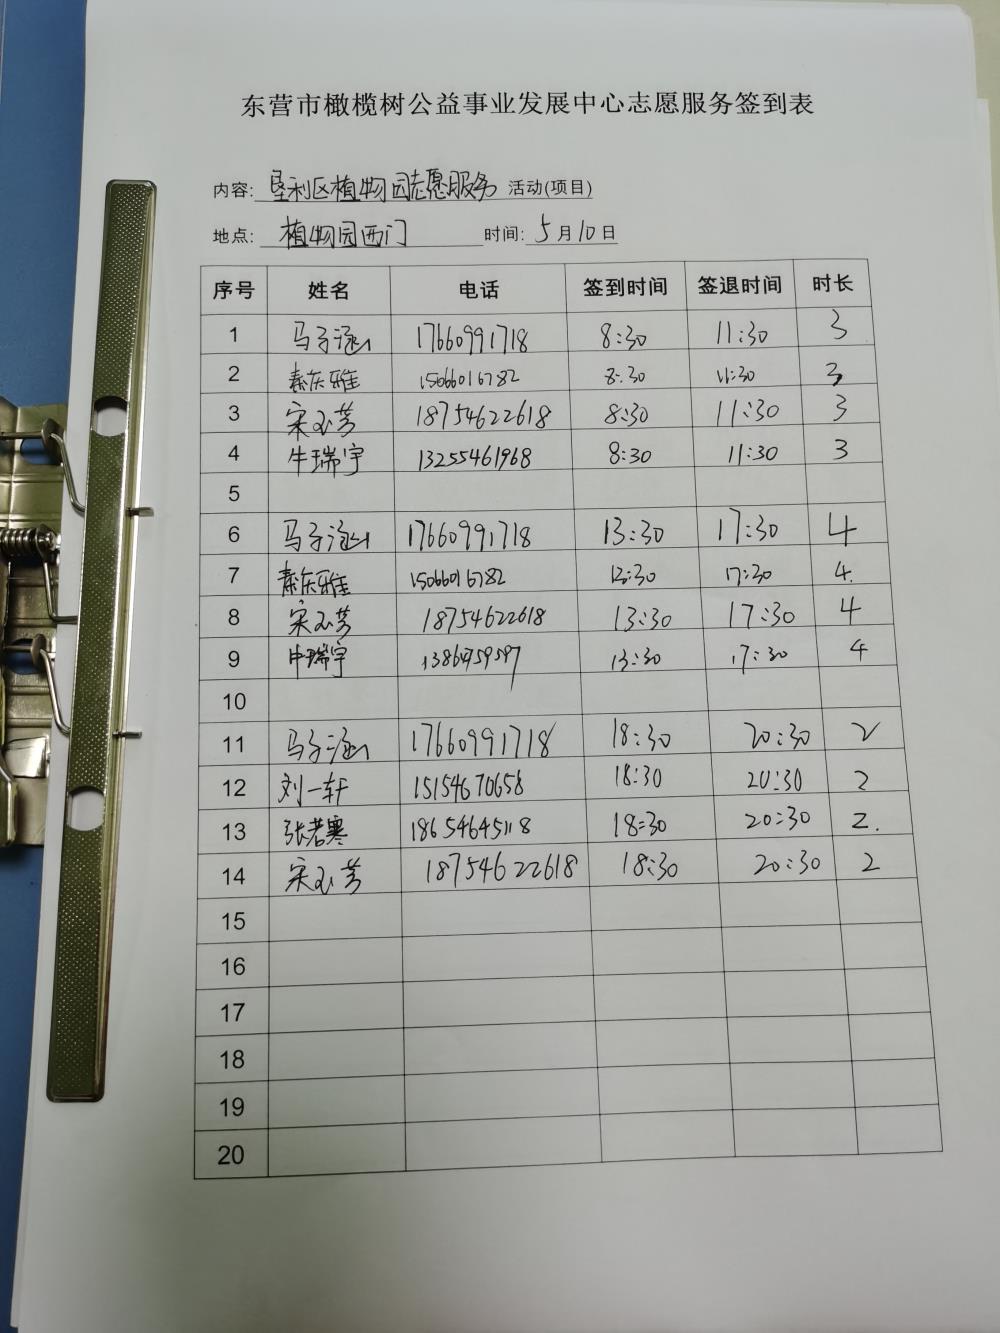 东营市橄榄树公益事业发展中心志愿服务签到表
内容: 垦利区植物园志愿服务 活动(项目)
地点: 植物园西门 时间: 5月10日
序号 姓名 电话 签到时间 签退时间 时长
1 马子涵 17660991718 8:30 11:30 3
2 秦庆雅 15066016782 8:30 11:30 3
3 宋玉芳 18754622618 8:30 11:30 3
4 牛瑞宇 13255461968 8:30 11:30 3
5
6 马子涵 17660991718 13:30 17:30 4
7 秦庆雅 15066016782 13:30 17:30 4.
8 宋玉芳 18754622618 13:30 17:30 4
9 瑞宇 13:30 17:30 4
10
11 马子涵 17660991718 18:30 20:30 2
12 刘一轩 15154670658 18:30 20:30 2
13 张若寒 18654645118 18:30 20:30 2.
14 宋玉芳 18754622618 18:30 20:30 2
15
16
17
18
19
20